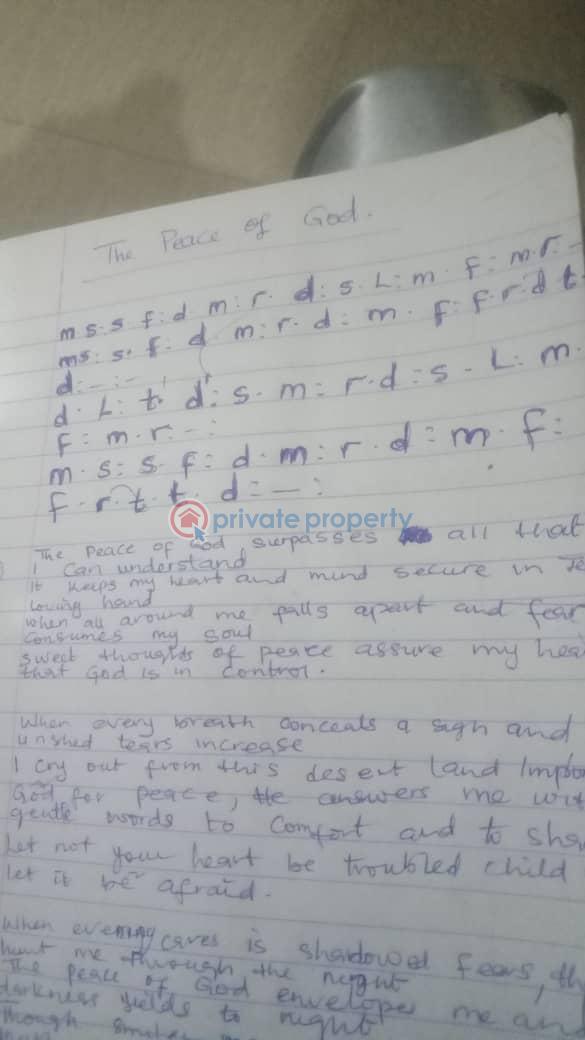 The Peace of God.
m s:s f:d m:r. d:s. L:m. f:m.r.-
ms:s. f:d m:r.d:m. f:f.r.d t.
d:-:-
d.L:t' d':s.m:r.d:s.L:m.
f:m.r.-:
m.s:s.f:d.m:r.d:m.f:
f.r.t.t.d:-:
private property
The Peace of God surpasses all that
I Can understand
It keeps my heart and mind secure in
Loving hand
when all around me falls apart and fear
Consumes my soul
sweet thoughts of peace assure my
that God is in control.
When every breath conceals a sigh and
unshed tears increase
I cry out from this desert land
God for peace, He answers me
gentle words to comfort and to
Let not your heart be troubled child
let it be afraid.
When evening cares is shadowed fears,
hunt me through the night
The peace of God envelopes me and
darkness yields to night
Though